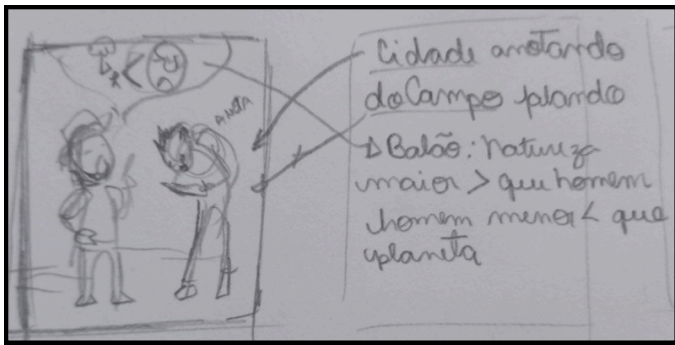 ANOTA
Cidade anotando
do Campo falando
Balão: natureza
maior > que homem
homem menor < que
planeta